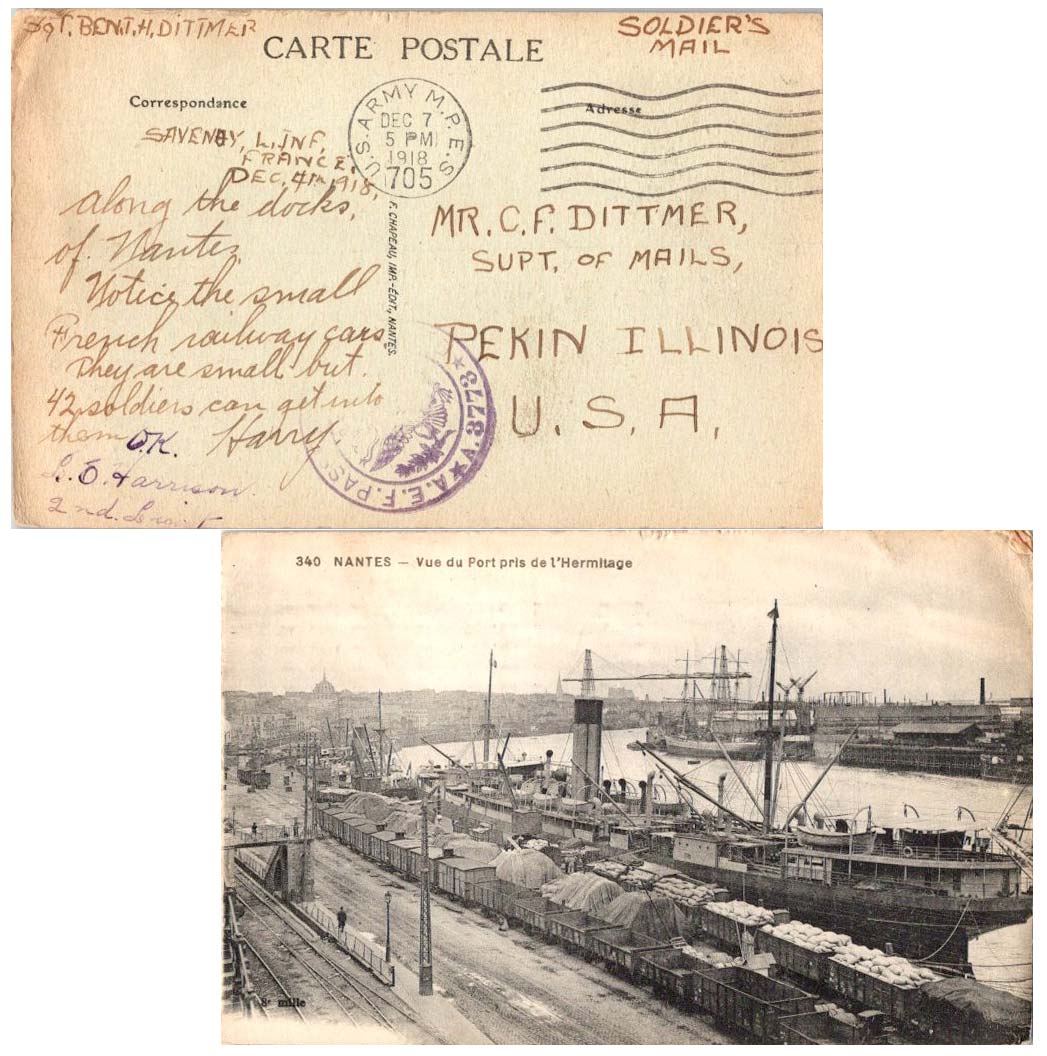 SgT. BENJ. H. DITTMER
SOLDIER'S
MAIL
CARTE POSTALE
Correspondance
Adresse
U.S. ARMY M.P.E.S.
DEC 7
5 PM
1918
705
SAVENAY, L. INF,
FRANCE,
DEC, 4TH, 1918,
along the docks,
of Nantes.
Notice the small
French railway cars
They are small but
42 soldiers can get into
them
Harry
O.K.
G. E. Harrison
2nd.
F. CHAPEAU, IMP.-ÉDIT., NANTES.
MR. C. F. DITTMER,
SUPT. OF MAILS,
PEKIN ILLINOIS
U. S. A,
A.E.F. PASS
340 NANTES — Vue du Port pris de l'Hermitage
8e mille